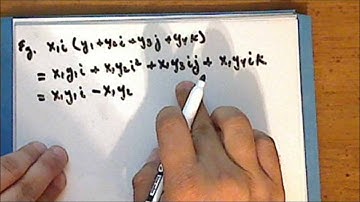 Eg. x₁i (y₁+y₂i+y₃j+y₄k)
= x₁y₁i + x₁y₂i² + x₁y₃ij + x₁y₄ik
= x₁y₁i - x₁y₂